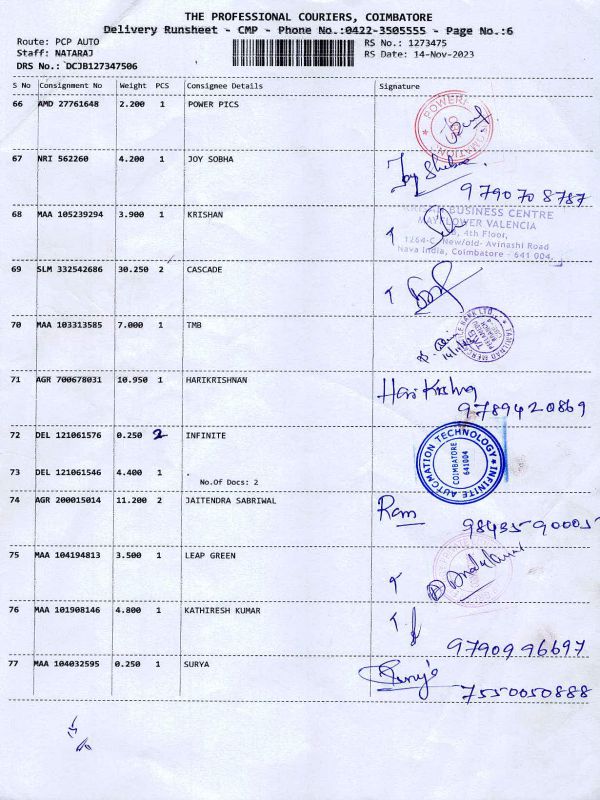 THE PROFESSIONAL COURIERS, COIMBATORE
Delivery Runsheet - CMP - Phone No.:0422-3505555 - Page No.:6
Route: PCP AUTO
Staff: NATARAJ
DRS No.: DCJB127347506
RS No.: 1273475
RS Date: 14-Nov-2023
S No Consignment No Weight PCS Consignee Details Signature
66 AMD 27761648 2.200 1 POWER PICS
67 NRI 562260 4.200 1 JOY SOBHA
9790708787
68 MAA 105239294 3.900 1 KRISHAN
BUSINESS CENTRE
MAYFLOWER VALENCIA
4th Floor,
1264-C, New/old- Avinashi Road
Nava India, Coimbatore - 641 004.
69 SLM 332542686 30.250 2 CASCADE
70 MAA 103313585 7.000 1 TMB
71 AGR 700678031 10.950 1 HARIKRISHNAN
Hari Krishna
9789420869
72 DEL 121061576 0.250 2 INFINITE
INFINITE AUTOMATION TECHNOLOGY
COIMBATORE
641004
73 DEL 121061546 4.400 1 .
No.Of Docs: 2
74 AGR 200015014 11.200 2 JAITENDRA SABRIWAL
Ram
75 MAA 104194813 3.500 1 LEAP GREEN
76 MAA 101908146 4.800 1 KATHIRESH KUMAR
9790996697
77 MAA 104032595 0.250 1 SURYA
7550050888